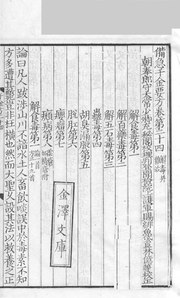 備急千金要方卷第二十四
朝奉郎守太常少卿充秘閣校理判登聞檢院上護軍賜緋魚袋臣林億等校正
解食毒第一
解百藥毒第二
解五石毒第三
蠱毒第四
胡臭漏腋第五
脫肛第六
癭瘤第七
病第八
解食毒第一
論曰凡人跋涉山川不諳水土人畜飲啖誤中於毒素不知
方多遭其斃豈非枉橫也然而大聖久設其法以救養之正
金澤文庫